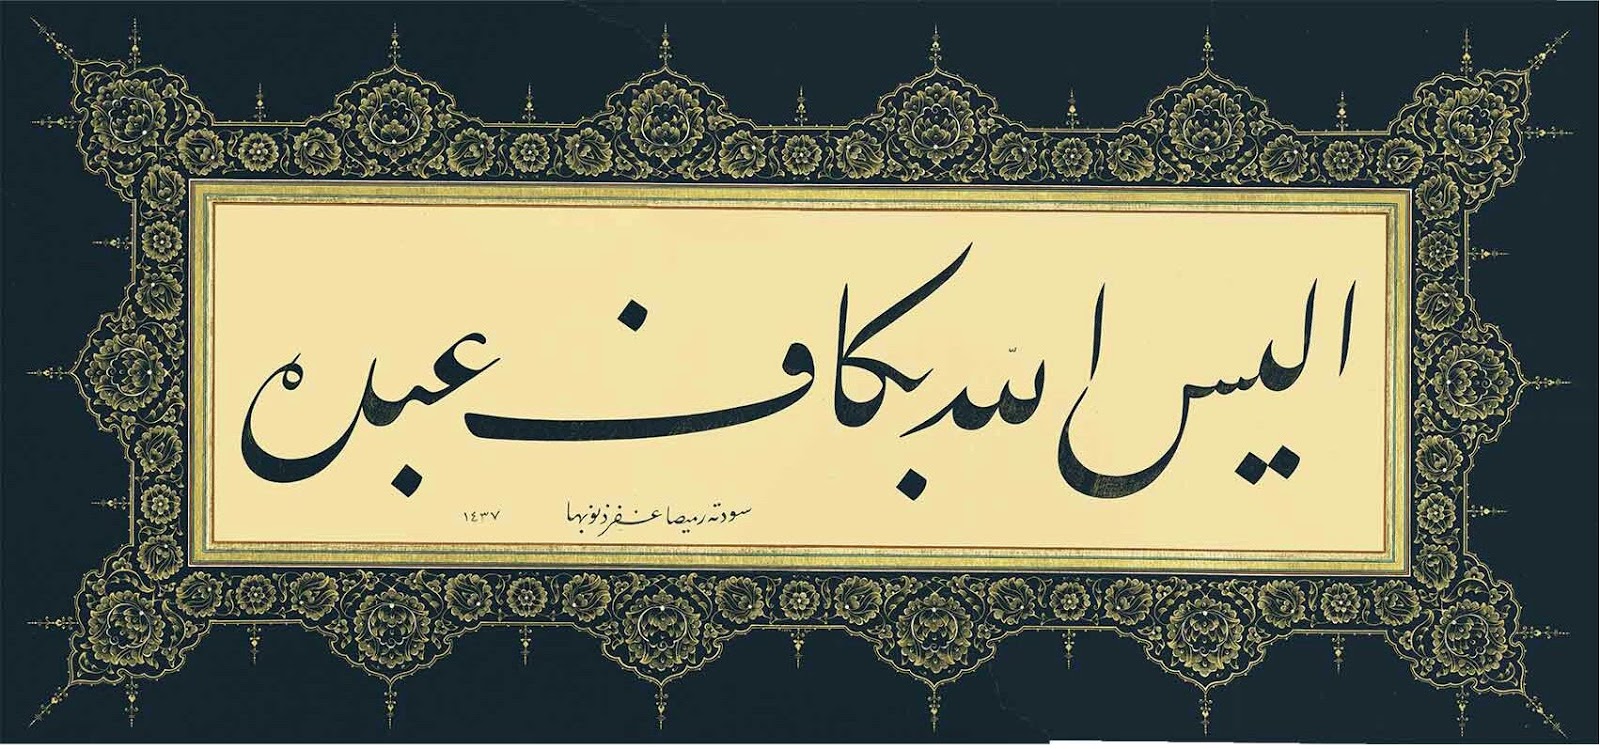 اليس الله بكاف عبده
سودته رميصا غفر ذنوبها
١٤٣٧